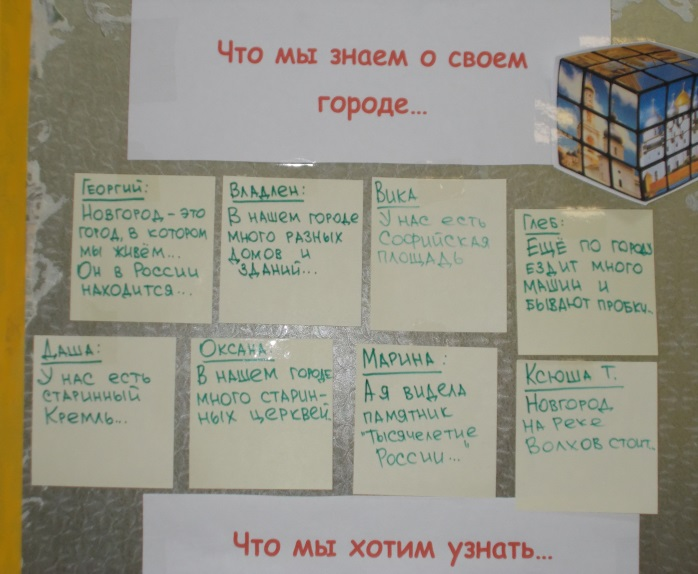 Что мы знаем о своем
городе...
Георгий:
Новгород - это
город, в котором
мы живём...
Он в России
находится...
Владлен:
В нашем городе
много разных
домов и
зданий...
Вика
У нас есть
Софийская
площадь
Глеб:
Ещё по городу
ездит много
машин и
бывают пробки..
Даша:
У нас есть
старинный
Кремль...
Оксана
В нашем городе
много старин-
ных церквей.
Марина:
А я видела
памятник
"Тысячелетие
России..."
Ксюша Т.
Новгород
на реке
Волхов стоит..
Что мы хотим узнать...